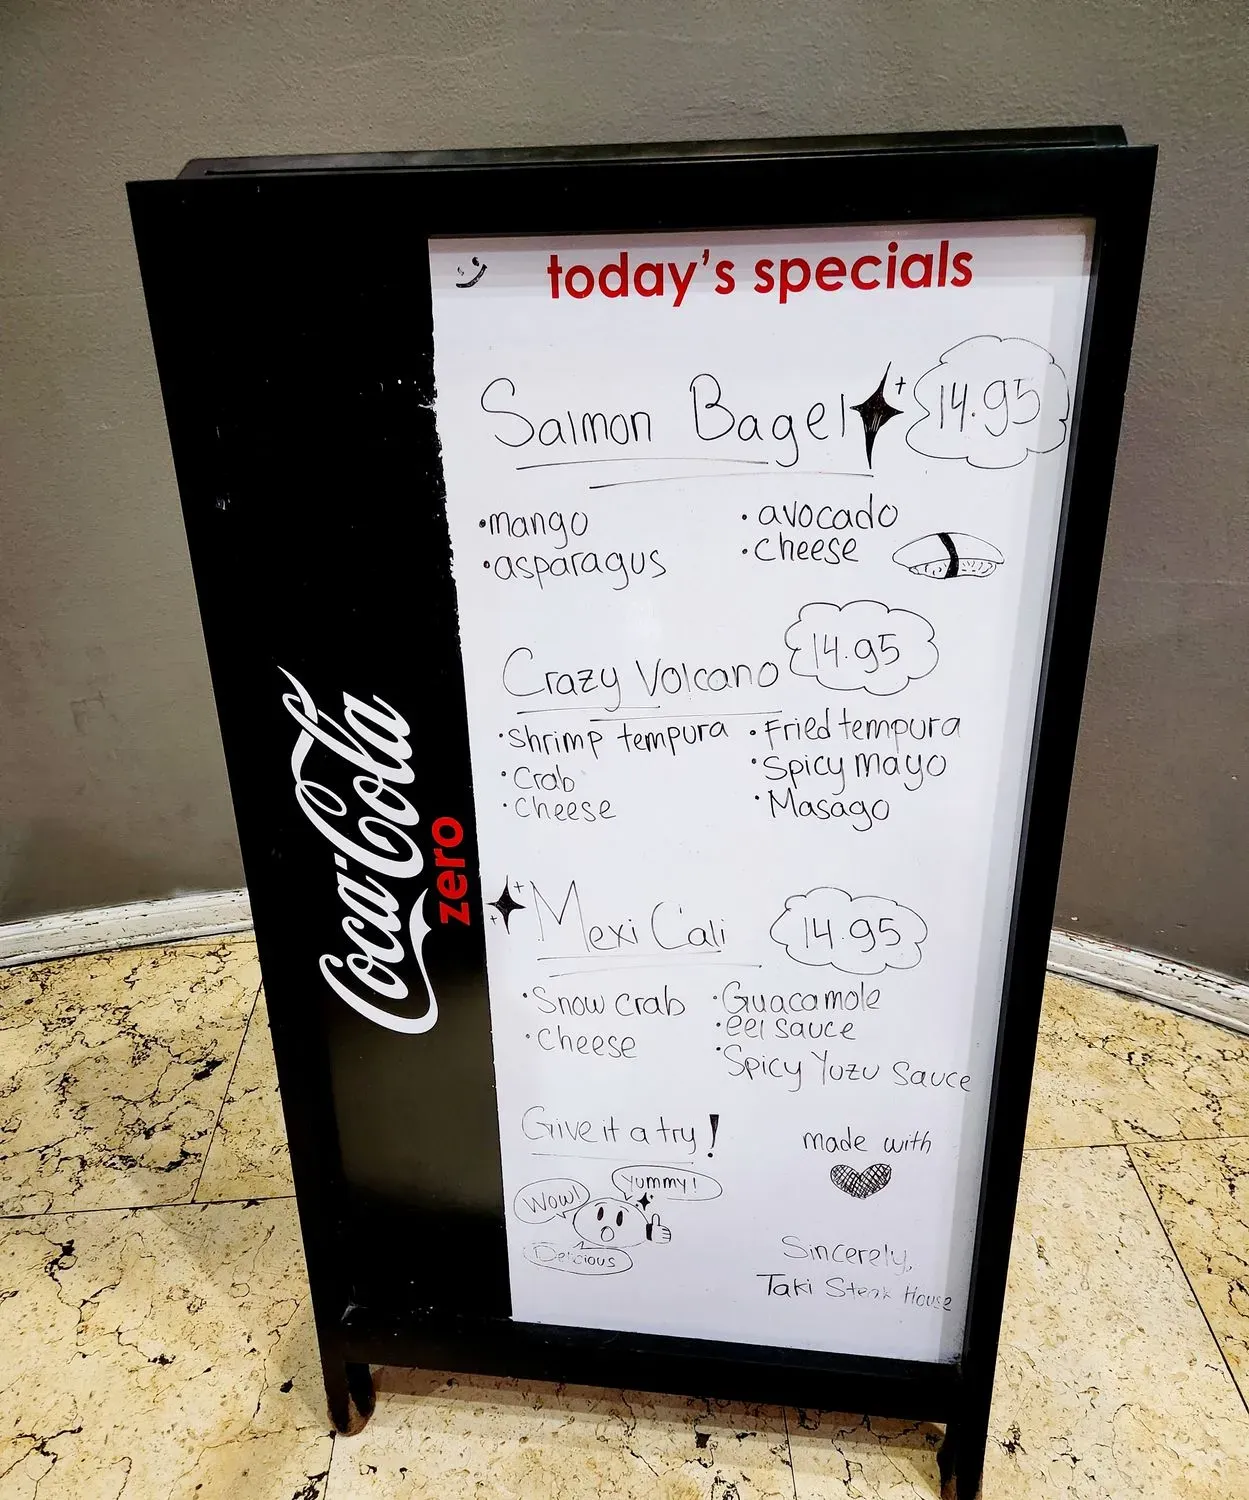 today's specials
Salmon Bagel 14.95
•mango
•asparagus
•avocado
•cheese
Crazy Volcano 14.95
•Shrimp tempura
•Crab
•Cheese
•Fried tempura
•Spicy mayo
•Masago
Mexi Cali 14.95
•Snow crab
•Cheese
•Guacamole
•eel sauce
•Spicy Yuzu Sauce
Give it a try!
Wow!
Yummy!
Delicious
made with
Sincerely,
Taki Steak House
Coca-Cola
zero